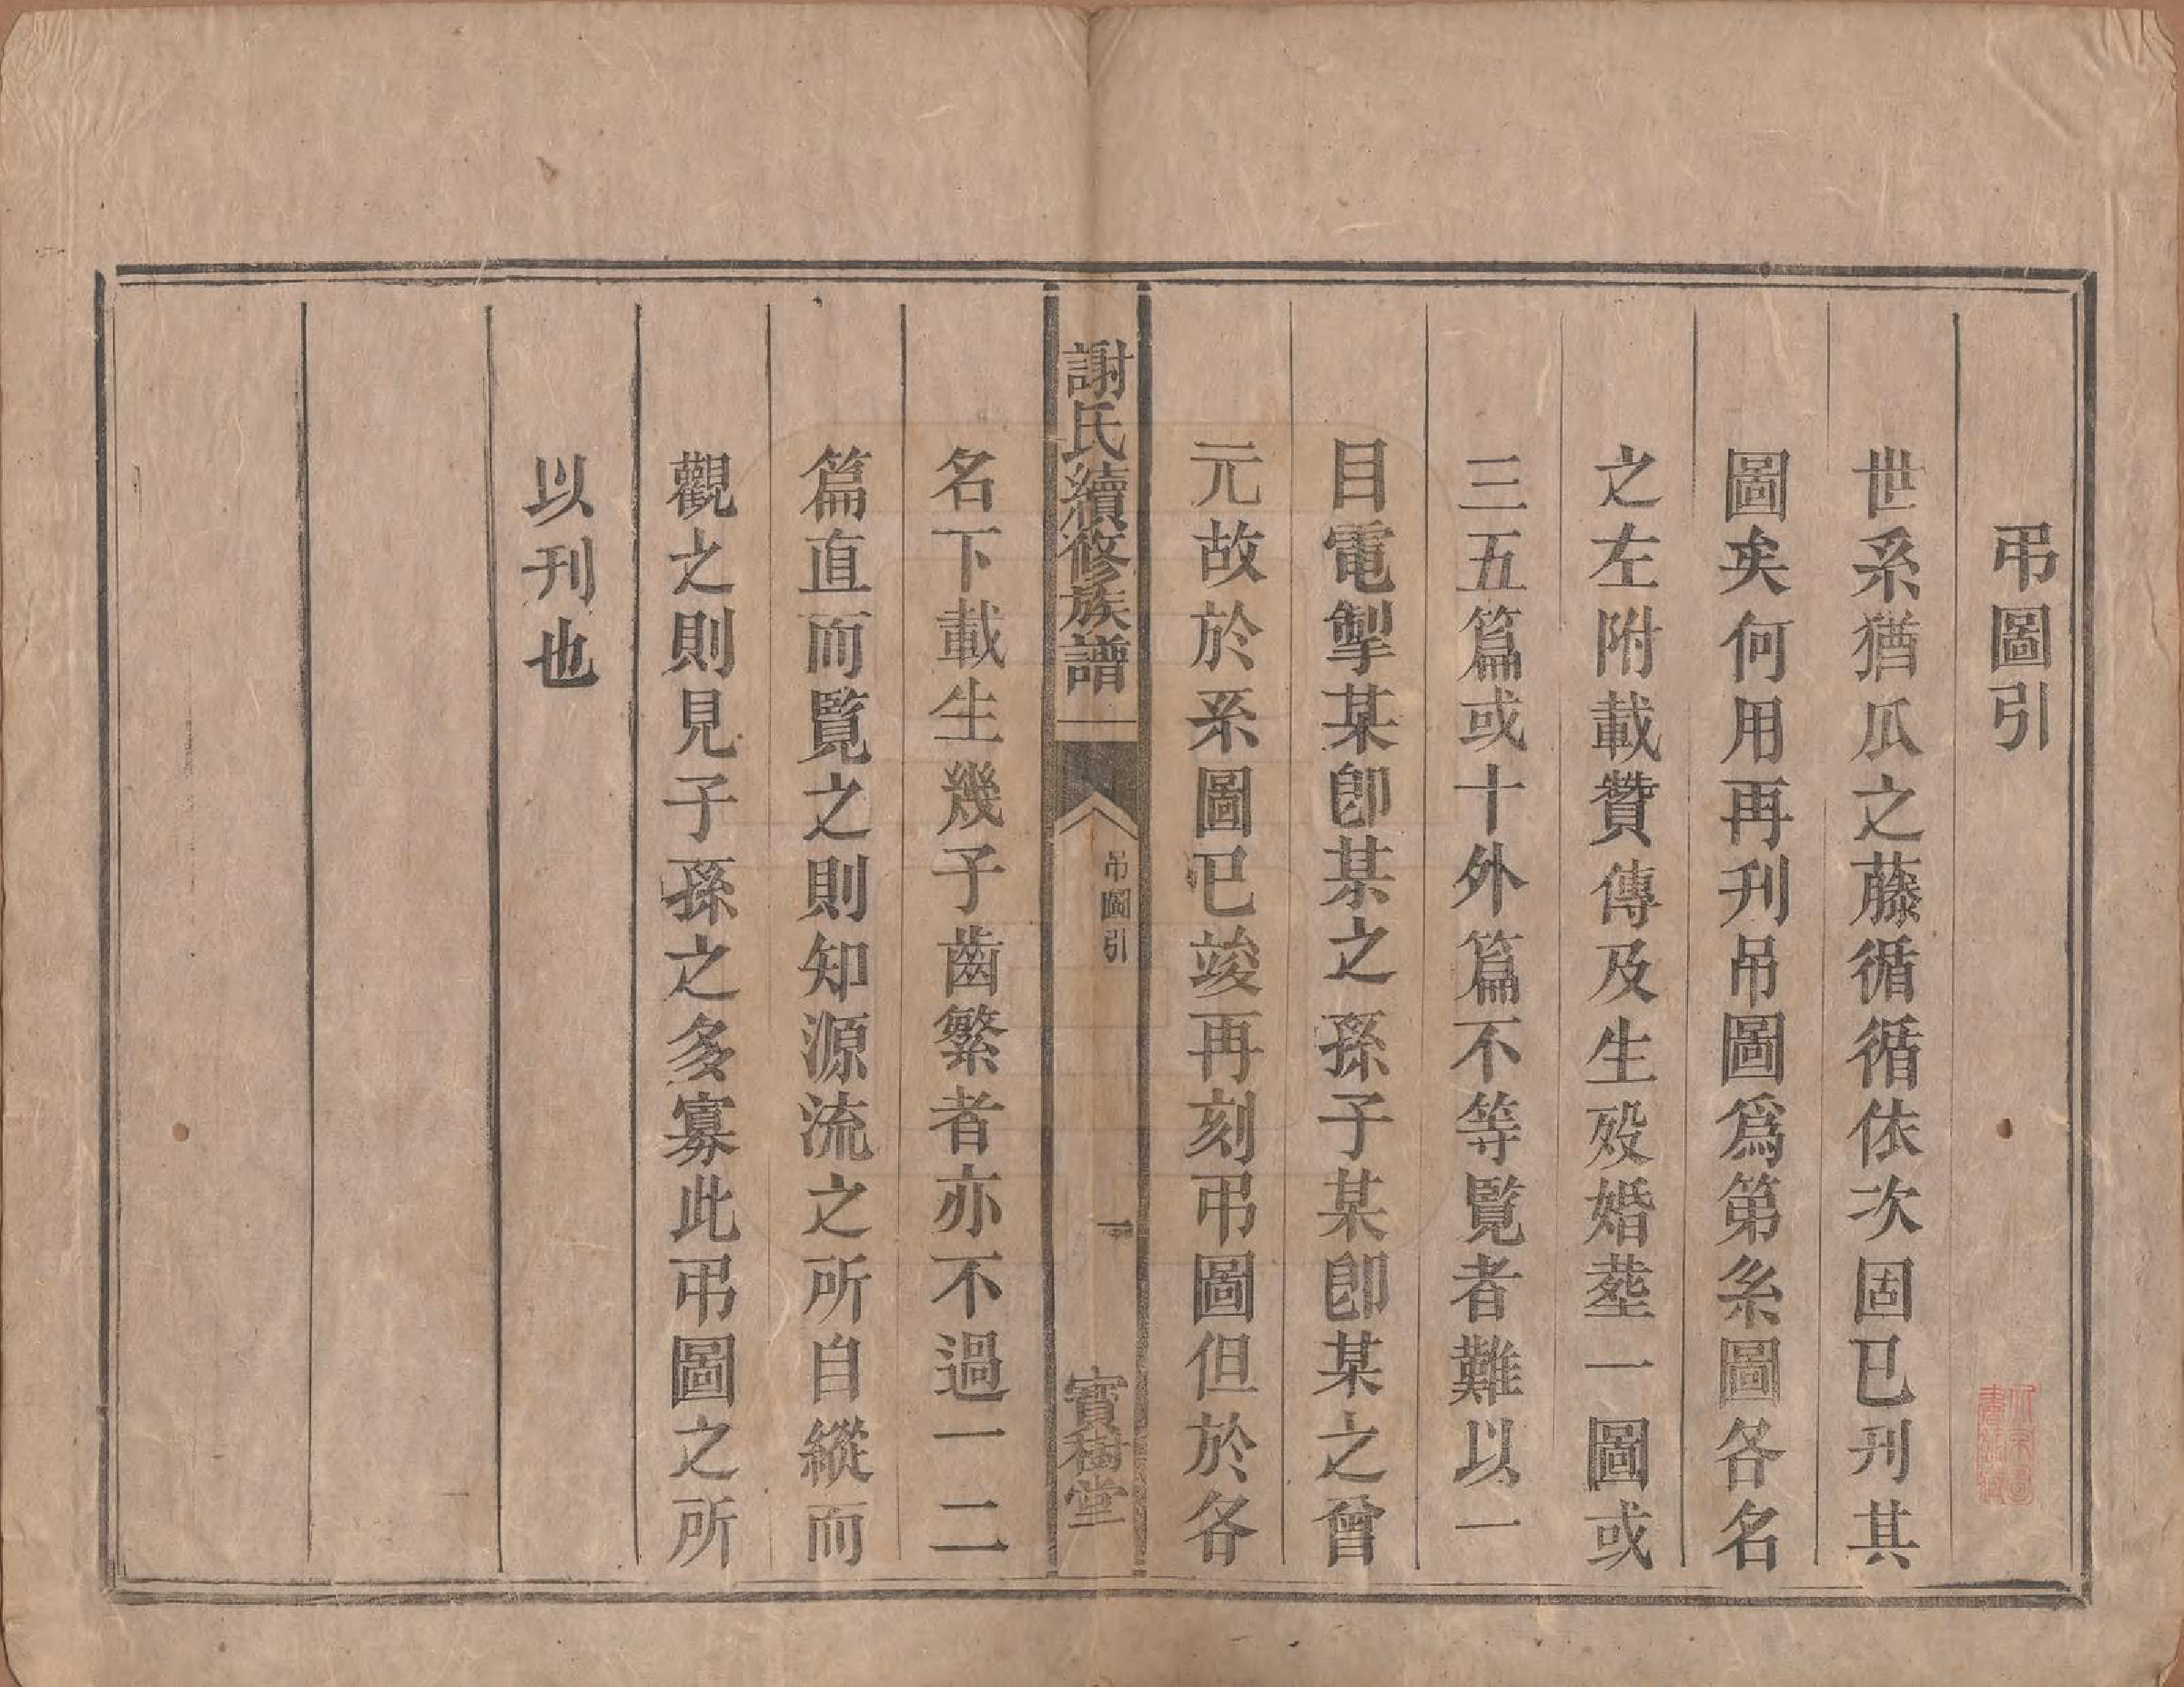 弔圖引
世系猶瓜之藤循循依次固已刊其
圖矣何用再刊吊圖爲第系圖各名
之左附載贊傳及生歿婚塟一圖或
三五篇或十外篇不等覽者難以一
目電掣某卽某之孫子某卽某之曾
元故於系圖已竣再刻弔圖但於各
謝氏續修族譜
吊圖引
一
寶樹堂
名下載生幾子齒繁者亦不過一二
篇直而覽之則知源流之所自縱而
觀之則見子孫之多寡此弔圖之所
以刊也